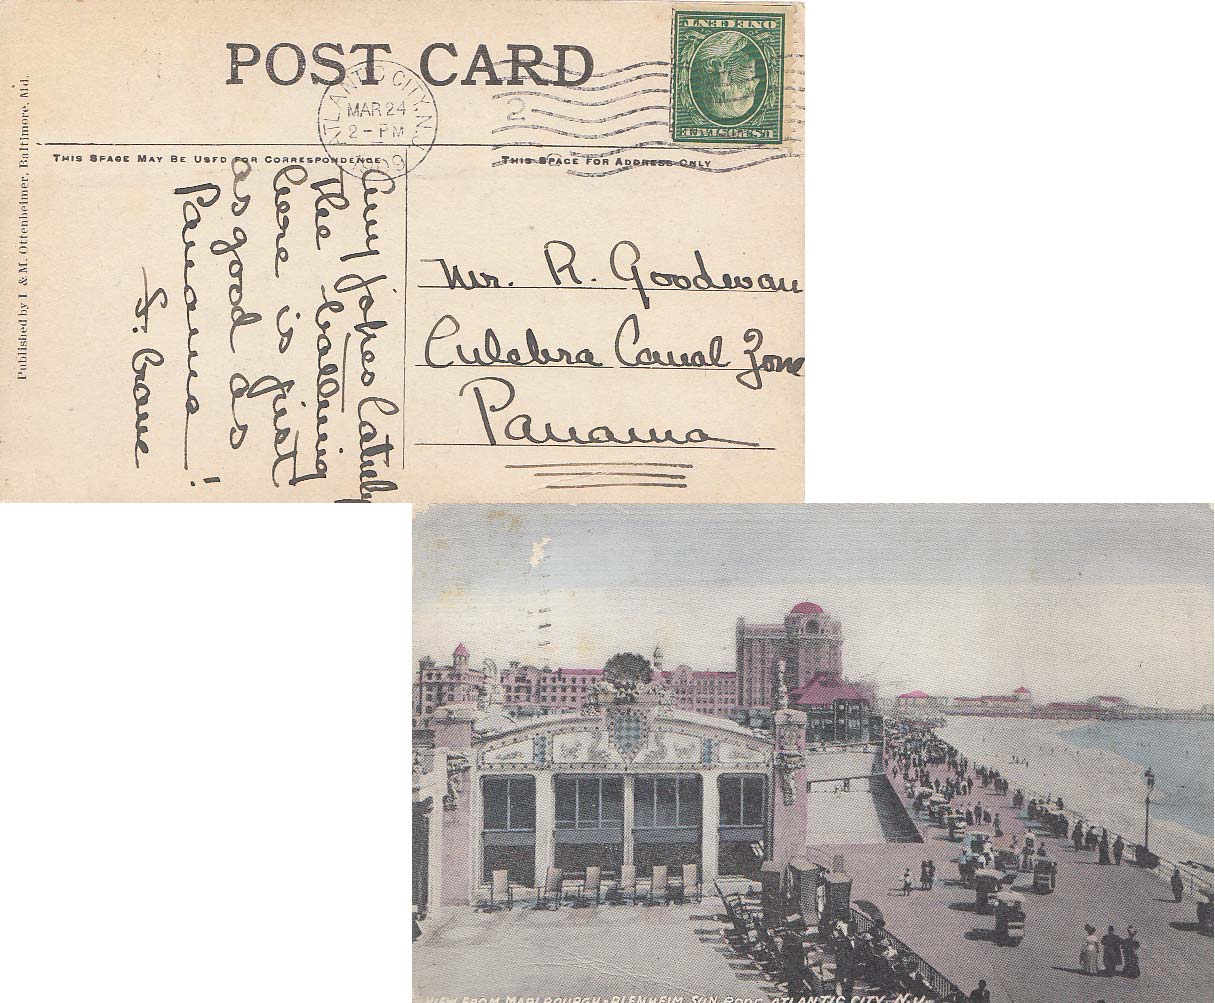 POST CARD
ATLANTIC CITY, N.J.
MAR 24
2 - PM
1909
2
ONE CENT
U.S. POSTAGE
THIS SPACE MAY BE USED FOR CORRESPONDENCE
THIS SPACE FOR ADDRESS ONLY
Published by I & M. Ottenheimer, Baltimore, Md.
Any jokes lately
The bathing
here is just
as good as
Panama!
F. Crane
Mr. R. Goodwan
Culebra Canal Zone
Panama
VIEW FROM MARLBOURGH-BLENHEIM, SUN PORC, ATLANTIC CITY, N.J.